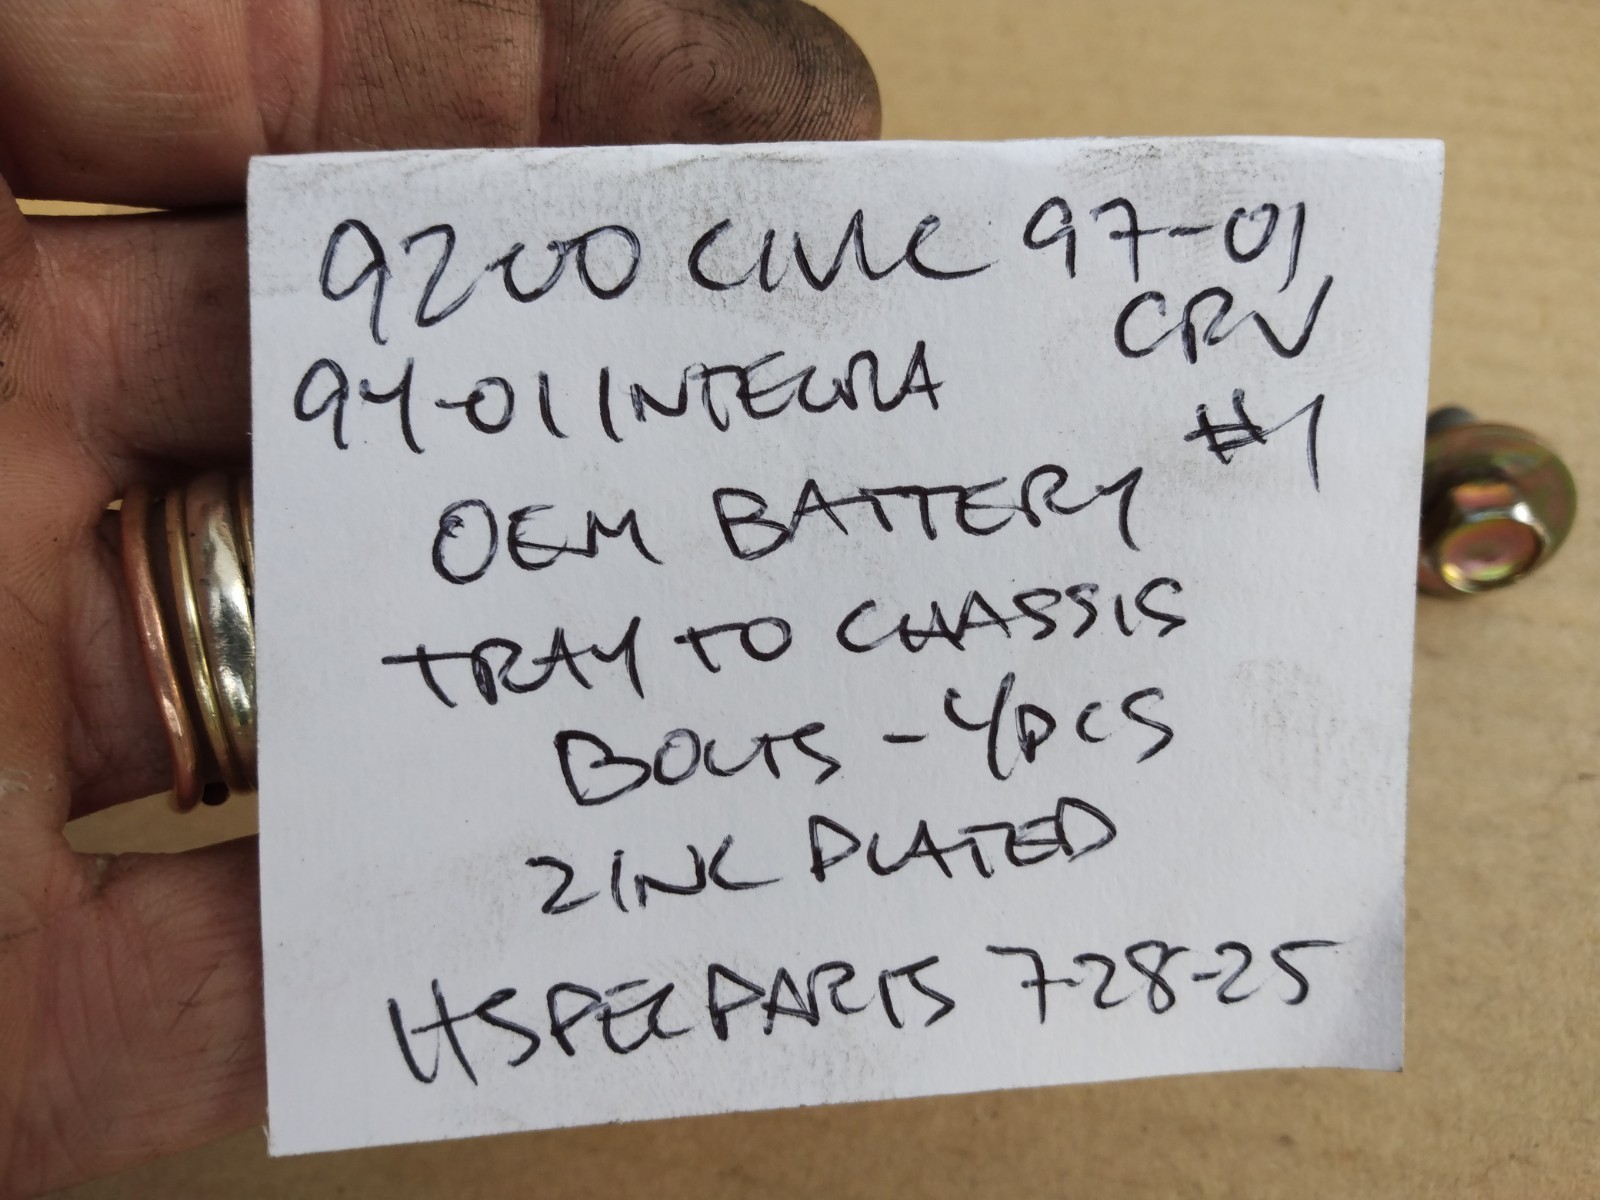 9200 CIVIC 97-01
CRV
94-01 INTEGRA
#1
OEM BATTERY
TRAY TO CHASSIS
BOLTS - 4PCS
ZINC PLATED
HSPECPARTS 7-28-25